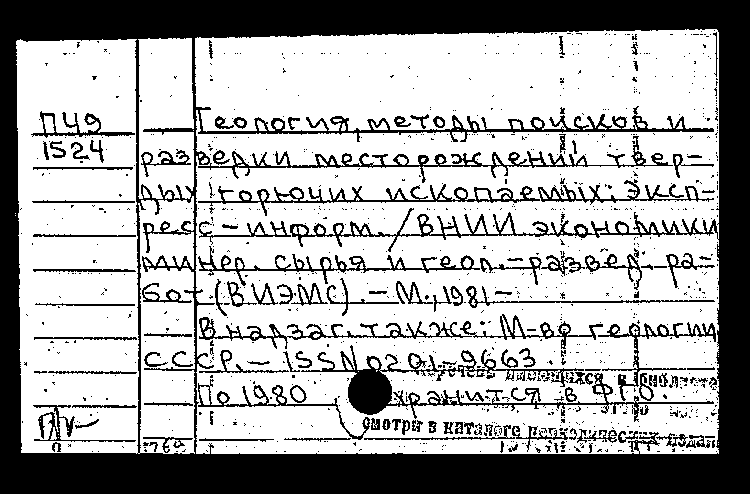 П49
1524
Геология, методы поисков и
разведки месторождений твер-
дых горючих ископаемых: Эксп-
ресс-информ. / ВНИИ экономики
минер. сырья и геол.-развед. ра-
бот (ВИЭМС). - М., 1981-
В надзаг. также: М-во геологии
СССР. - ISSN 0201-9663.
Перечень имеющихся в библиоте
По 1980 хранится в ФПО.
смотри в каталоге периодических издан
769